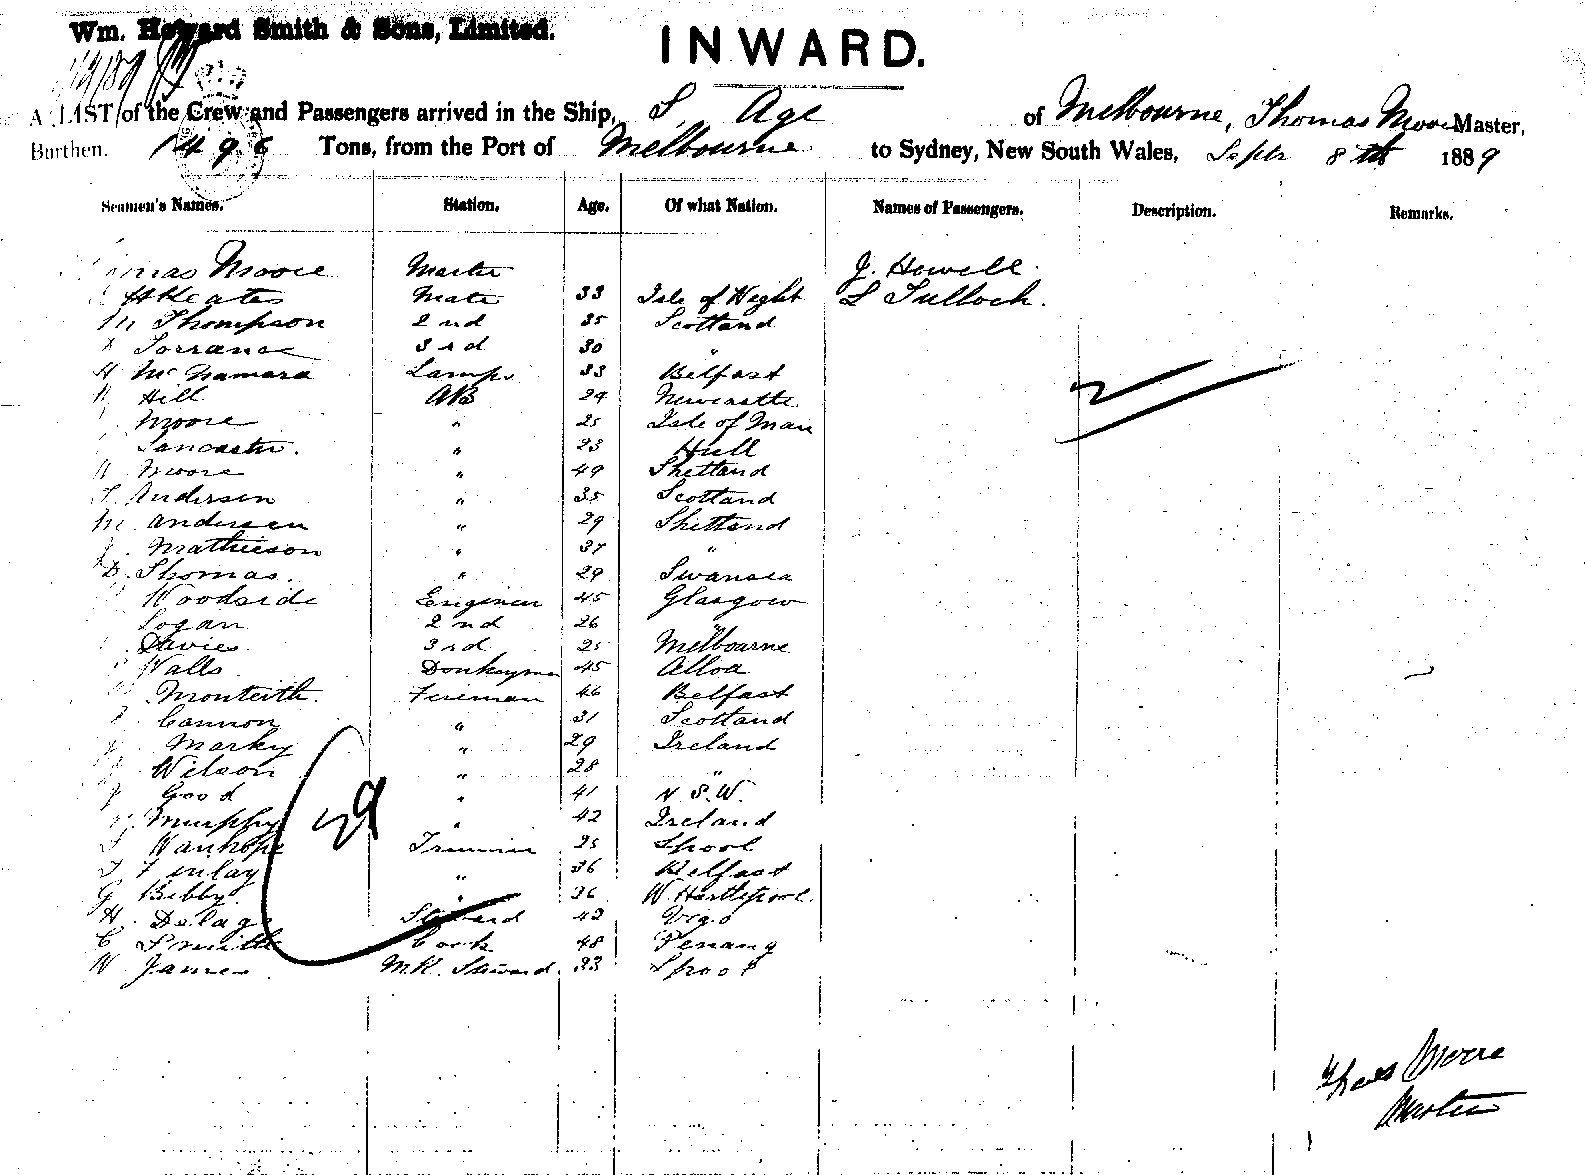 Wm. Howard Smith & Sons, Limited.
INWARD.
A LIST of the Crew and Passengers arrived in the Ship, S. Age of Melbourne, Thomas Moore Master,
Burthen. 1496 Tons, from the Port of Melbourne to Sydney, New South Wales, Septr 8th 1889
Seamen's Names. Station. Age. Of what Nation. Names of Passengers. Description. Remarks.
Moore Master J. Howell.
H Keates Mate 33 Isle of Wight S Tulloch.
M Thompson 2nd 35 Scotland
Torrance 3rd 30 "
H McNamara Lamps 33 Belfast
Hill AB 29 Newcastle
Moore " 25 Isle of Man
Lancaster. " 23 Hull
Moore " 49 Shetland
T. Anderson " 35 Scotland
M. Anderson " 29 Shetland
J. Mathieson " 37 "
D. Thomas. " 29 Swansea
Woodside Engineer 45 Glasgow
Logan 2nd 26 "
Davies 3rd 25 Melbourne
Walls Donkeyman 45 Alloa
Monteith. Fireman 46 Belfast
Cannon " 31 Scotland
Marky " 29 Ireland
Wilson " 28 "
Good " 41 N.S.W.
Murphy " 42 Ireland
Wanhope Trimmer 25 Lpool
T Finlay " 36 Belfast
G Bibby. " 36 W. Hartlepool.
H. Delage Steward 42 Vigo
C Smith Cook 48 Penang
W James M.R. Steward 33 Lpool
Thos Moore
Master